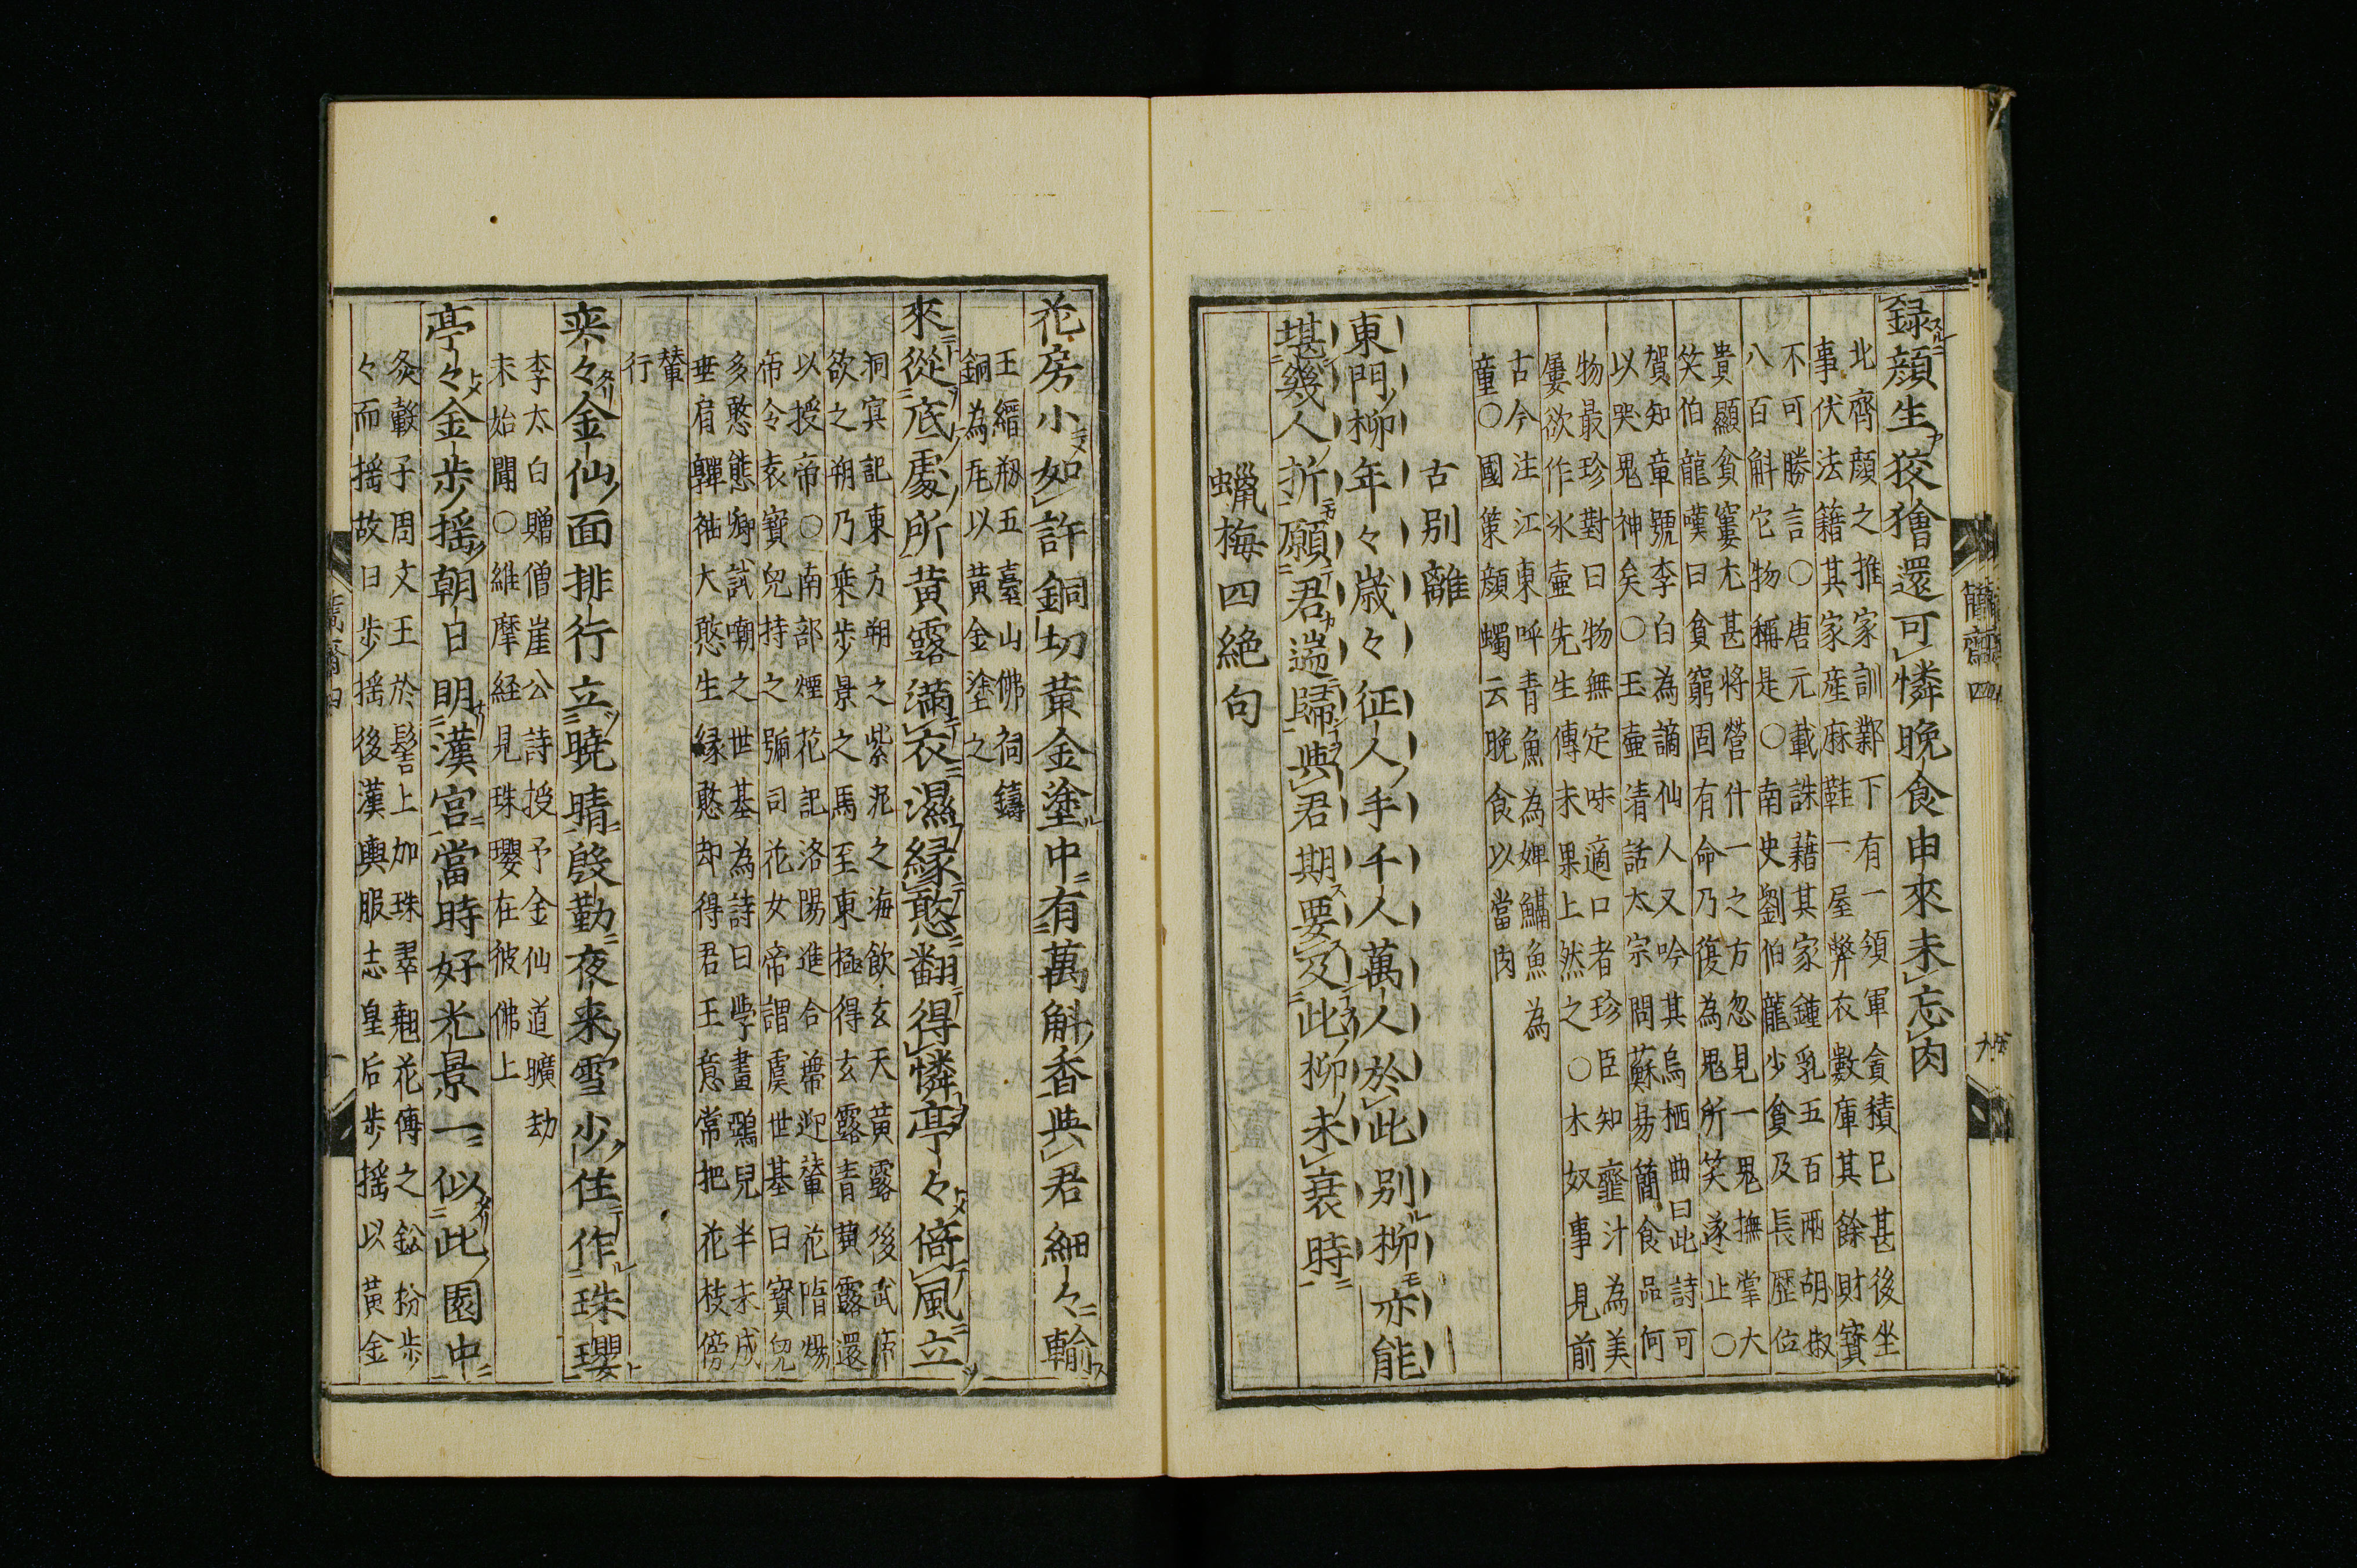 録顔生狡獪還可憐晩食申來未忘肉
北齊顔之推家訓鄴下有一領軍貪積已甚後坐
事伏法籍其家産麻鞋一屋弊衣數庫其餘財寳
不可勝言○唐元載誅藉其家鍾乳五百兩胡椒
八百斛它物稱是○南史劉伯龍少貧及長歴位
貴顯貧窶尤甚将營什一之方忽見一鬼撫掌大
笑伯龍嘆曰貧窮固有命乃復為鬼所笑遂止○
賀知章號李白為謫仙人又吟其烏栖曲曰此詩可
以哭鬼神矣○玉壷清話太宗問蘇易簡食品何
物最珍對曰物無定味適口者珍臣知虀汁為美
屢欲作氷壷先生傳未果上然之○木奴事見前
古今注江東呼青魚為婢鱅魚為
童○國策顔蠋云晩食以當肉
古别離
東門柳年々歳々征人手千人萬人於此别柳亦能
堪幾人折願君遄歸與君期要及此柳未衰時
蠟梅四絶句
簡齋四
花房小如許銅切黄金塗中有萬斛香與君細々輸
王縉剏五臺山佛祠鑄
銅為瓦以黄金塗之
來從底處所黄露滿衣濕縁憨翻得憐亭々倚風立
洞冥記東方朔之紫泥之海飲玄天黄露後武帝
欲之朔乃乗歩景之馬至東極得玄露青黄露還
以授帝○南部煙花記洛陽進合蔕迎輦花隋煬
帝令袁寳兒持之號司花女帝謂虞世基曰寳兒
多憨態卿試嘲之世基為詩曰學畫鵶兒半未成
垂肩嚲袖大憨生縁憨却得君王意常把花枝傍
輦
行
来々金仙面排行立曉晴殷勤夜来雪少住作珠瓔
李太白贈僧崖公詩授予金仙道曠劫
未始聞○維摩経見珠瓔在彼佛上
亭々金歩揺朝日明漢宮當時好光景一似此園中
炙轂子周文王於髻上加珠翠翹花傅之鉛粉歩
々而揺故曰歩揺後漢輿服志皇后歩揺以黄金